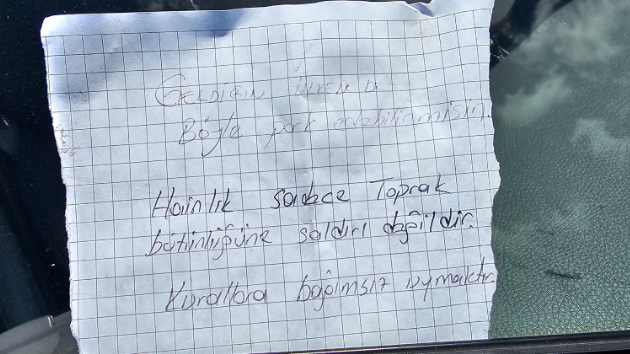 GELDİĞİN ÜLKEN DE
Böyle park edebiliyormisin.
Hainlik sadece Toprak
bütünlüğüne saldırı değildir.
Kurallara bağımsız uymaktır.